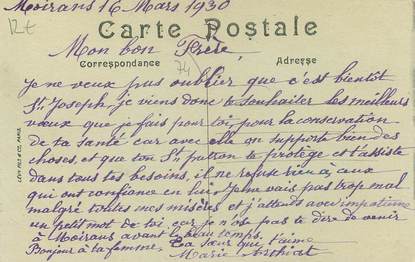 Moirans 16 Mars 1930
12t
Carte Postale
Mon bon Frère
Correspondance
74
Adresse
Je ne veux pas oublier que c'est bientôt
St Joseph, je viens donc te souhaiter les meilleurs
vœux que je fais pour toi pour la conservation
de ta santé car avec elle on supporte bien des
choses, et que ton St patron te protège et t'assiste
dans tous tes besoins, il ne refuse rien à ceux
qui ont confiance en lui. Je ne vais pas trop mal
malgré toutes mes misères et j'attends avec impatience
un petit mot de toi, car je n'ose pas te dire de venir
à Moirans avant le beau temps.
Bonjour à ta femme. Ta sœur qui t'aime
Marie
LÉVY FILS & CIE, PARIS